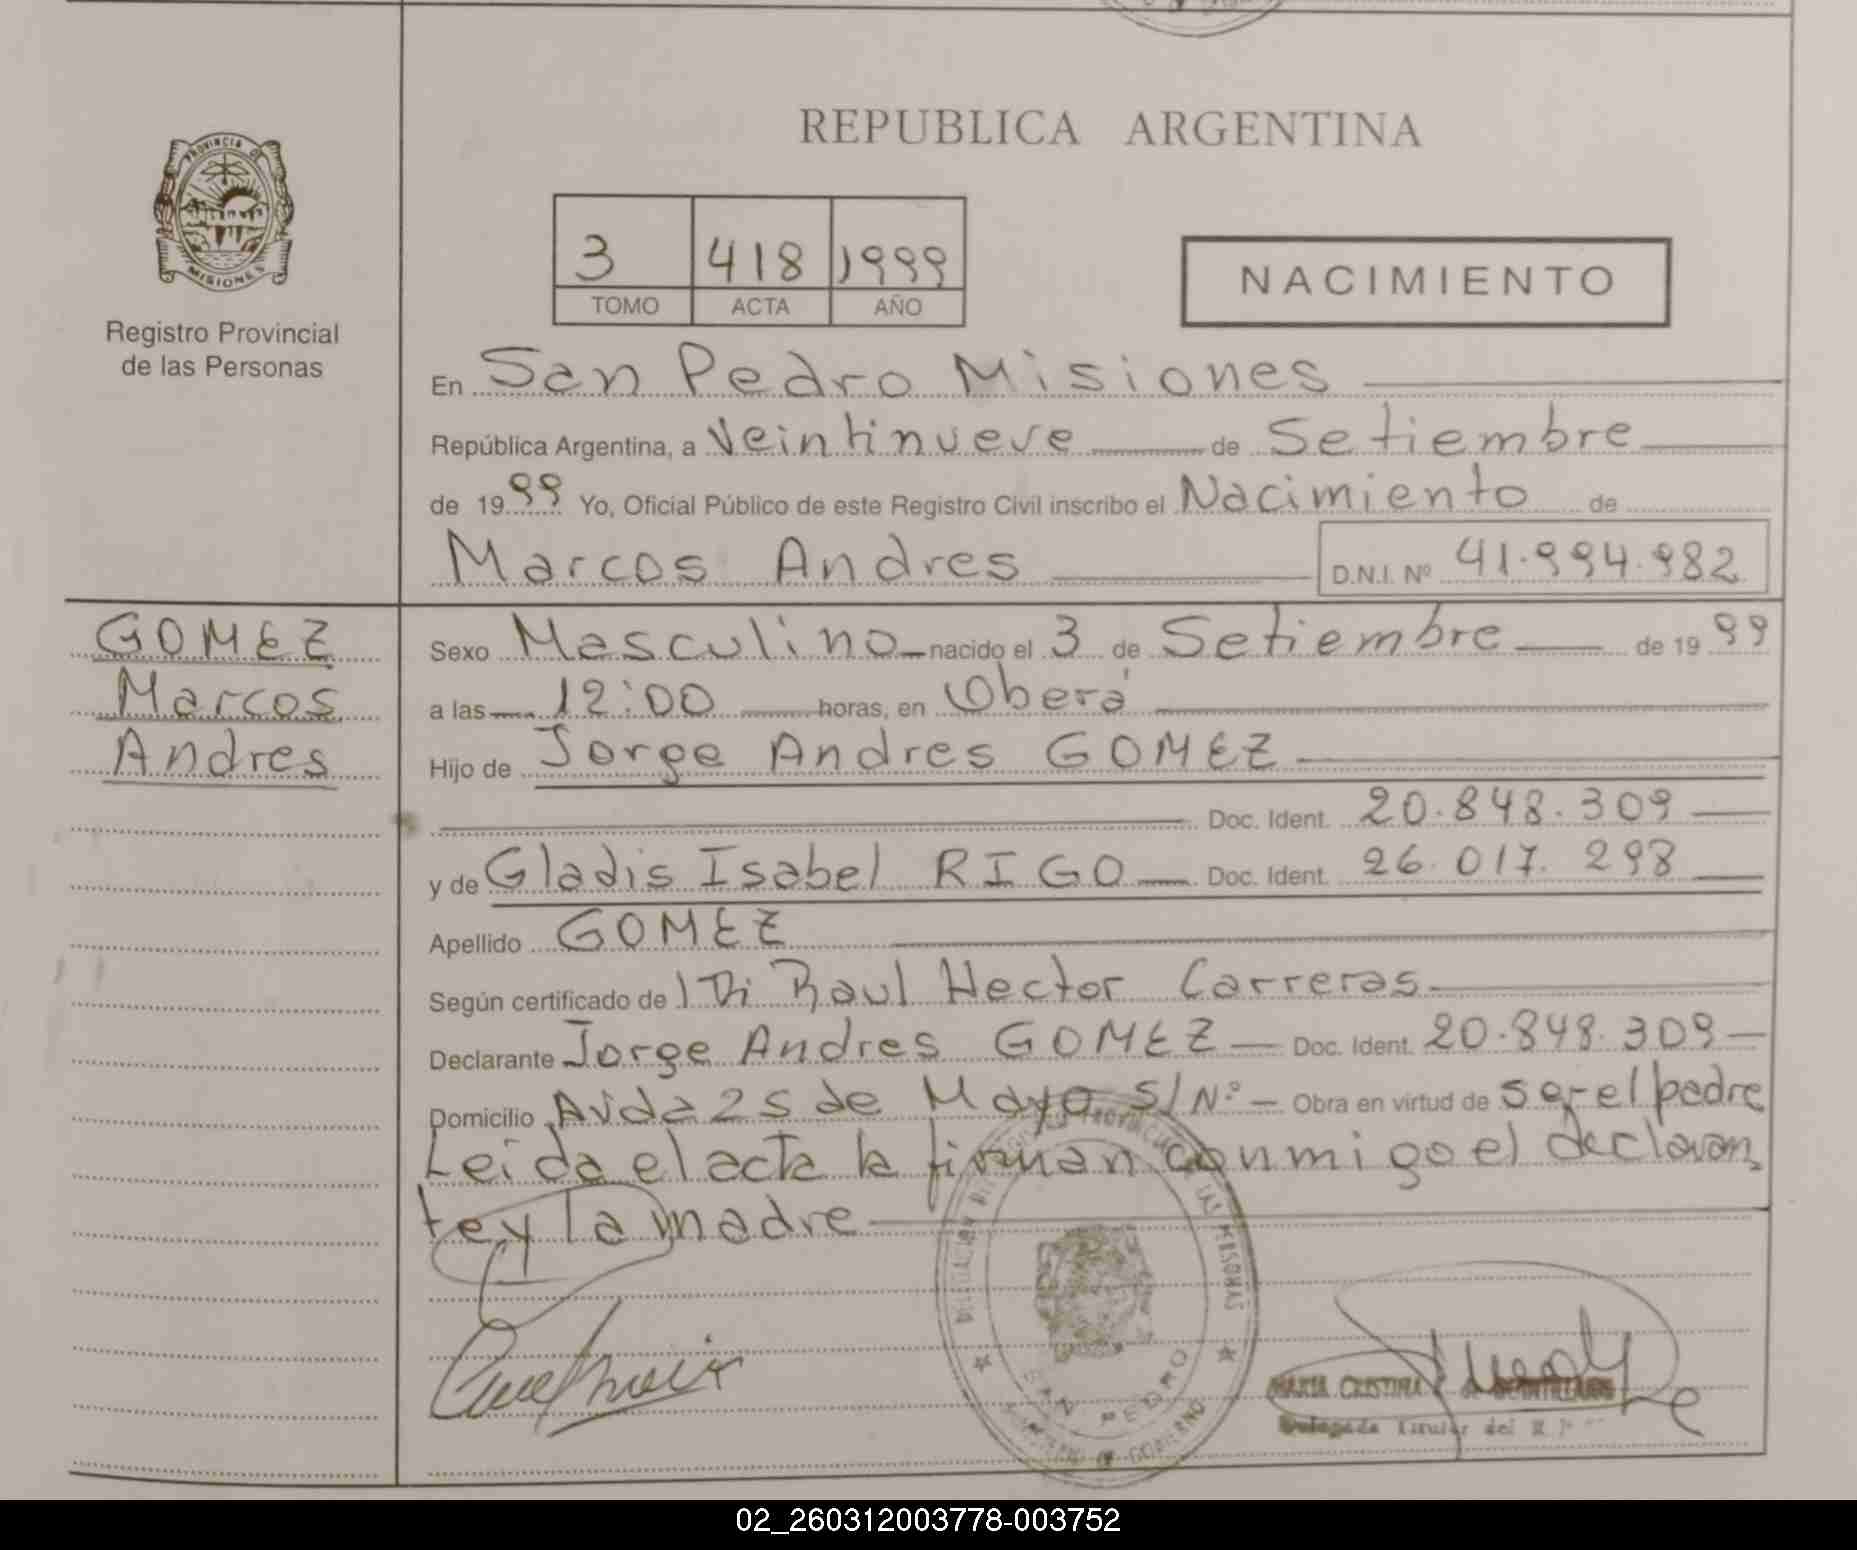 REPUBLICA ARGENTINA
PROVINCIA DE
MISIONES
Registro Provincial
de las Personas
3 418 1999
TOMO ACTA AÑO
NACIMIENTO
En San Pedro Misiones
República Argentina, a Veintinueve de Setiembre
de 1999 Yo, Oficial Público de este Registro Civil inscribo el Nacimiento de
Marcos Andres D.N.I. Nº 41.994.982
GOMEZ
Marcos
Andres
Sexo Masculino nacido el 3 de Setiembre de 1999
a las 12:00 horas, en Oberá
Hijo de Jorge Andres GOMEZ
Doc. Ident. 20.848.309
y de Gladis Isabel RIGO Doc. Ident. 26.017.298
Apellido GOMEZ
Según certificado de Raul Hector Carreras
Declarante Jorge Andres GOMEZ Doc. Ident. 20.848.309
Domicilio Avda 25 de Mayo S/Nº Obra en virtud de ser el padre
Leida el acta la firman conmigo el declaran
te y la madre
PROVINCIAL DE LAS PERSONAS
SAN PEDRO
DE GOBIERNO
MARIA CRISTINA
Delegada Titular del R.P.
02_260312003778-003752